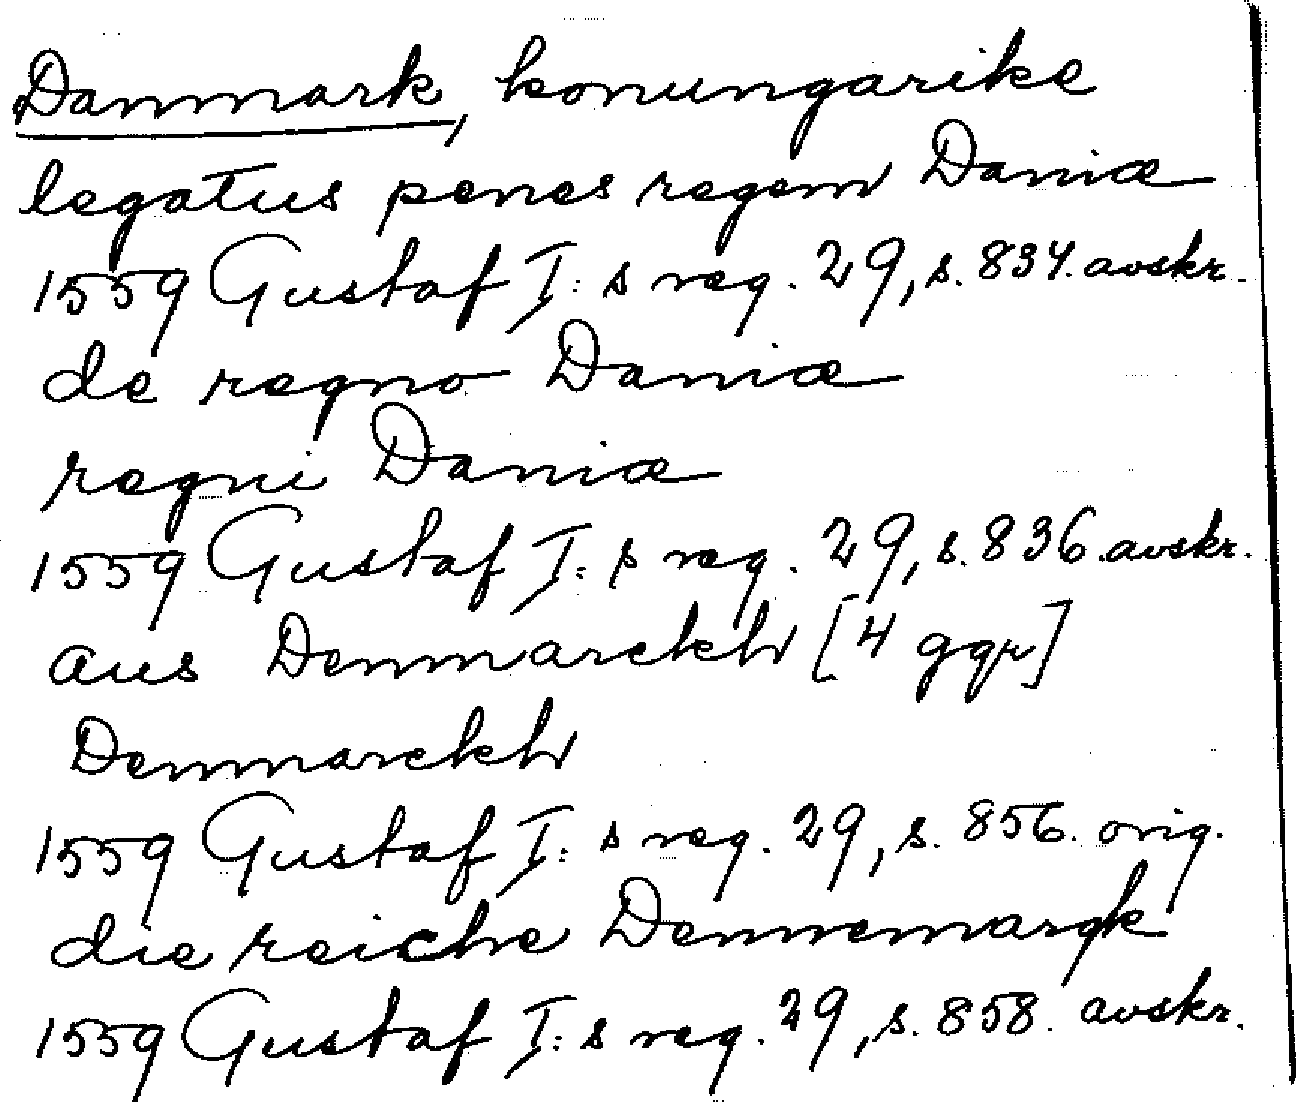 Danmark, konungarike
legatus penes regem Daniæ
1559 Gustaf I:s reg. 29, s. 834. avskr.
de regno Daniæ
regni Daniæ
1559 Gustaf I:s reg. 29, s. 836. avskr.
aus Denmarckh [4 ggr]
Denmarckh
1559 Gustaf I:s reg. 29, s. 856. orig.
die reiche Dennemargk
1559 Gustaf I:s reg. 29, s. 858. avskr.